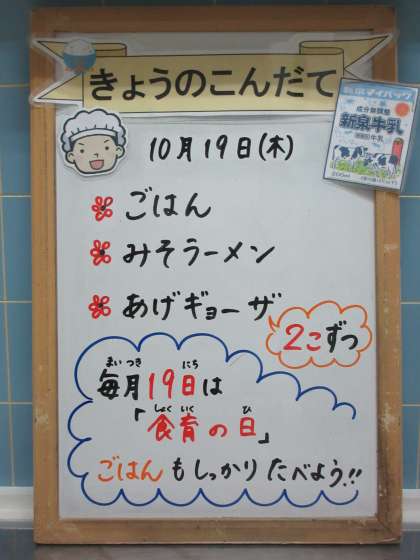 きょうのこんだて
成分無調整
新泉牛乳
牛乳
200ml
10月19日(木)
ごはん
みそラーメン
あげギョーザ
2こずつ
まいつき にち
毎月19日は
しょく いく ひ
「食育の日」
ごはんもしっかりたべよう!!